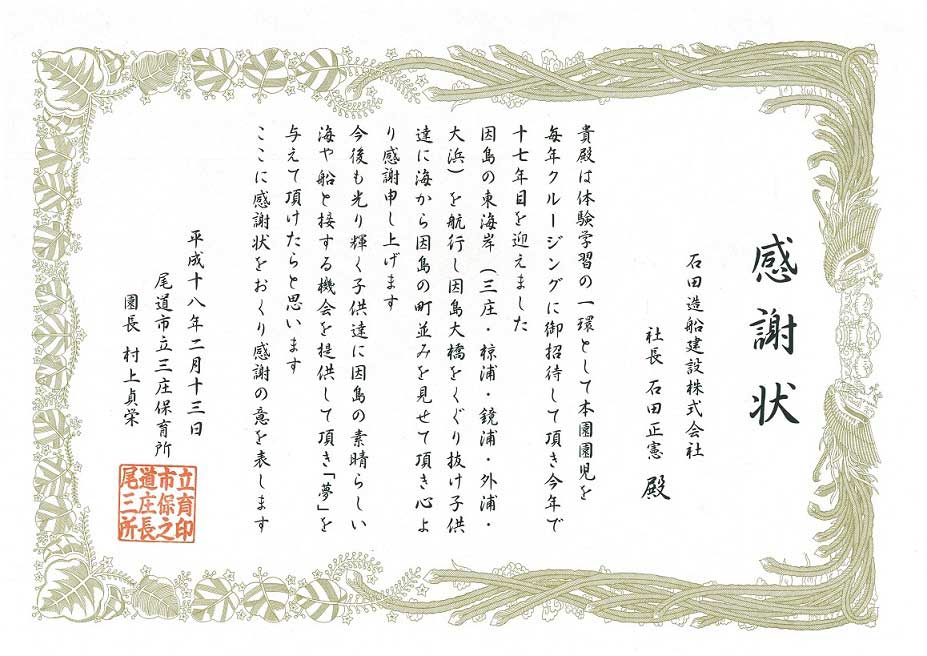 感謝状
石田造船建設株式会社
社長 石田正憲 殿
貴殿は体験学習の一環として本園園児を
毎年クルージングに御招待して頂き今年で
十七年目を迎えました
因島の東海岸（三庄・椋浦・鏡浦・外浦・
大浜）を航行し因島大橋をくぐり抜け子供
達に海から因島の町並みを見せて頂き心よ
り感謝申し上げます
今後も光り輝く子供達に因島の素晴らしい
海や船と接する機会を提供して頂き「夢」を
与えて頂けたらと思います
ここに感謝状をおくり感謝の意を表します
平成十八年二月十三日
尾道市立三庄保育所
園長 村上貞栄
立育印
市保之
道庄長
尾三所